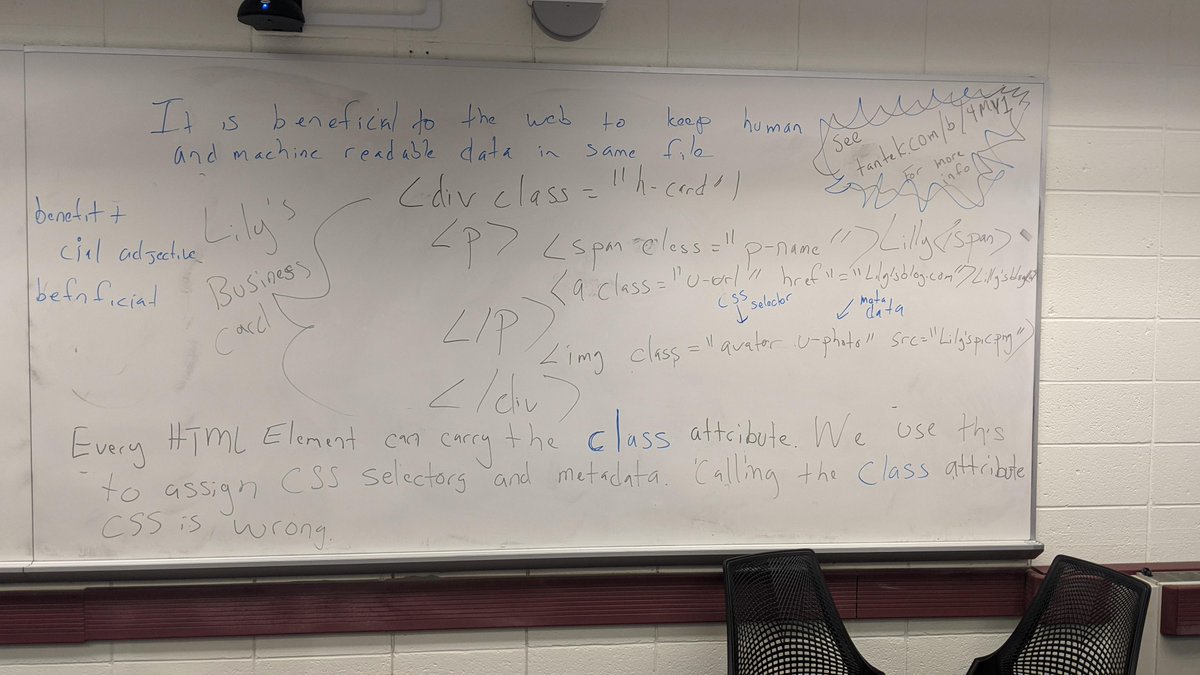 It is benefical to the web to keep human
and machine readable data in same file
See
tantek.com/b/4MV1
For more
info
benefit +
cial adjective
befnficial
Lily's
Business
Card
<div class="h-card")
<p>
<span class="p-name">Lilly</span>
<a class="u-url" href"="Lily'sblog.com">Lilly'sblog
CSS selector
meta
data
</p>
<img class="avatar u-photo" src="Lily'spic.png">
</div>
Every HTML Element can carry the class attribute. We use this
to assign CSS selectors and metadata. Calling the class attribute
CSS is wrong.